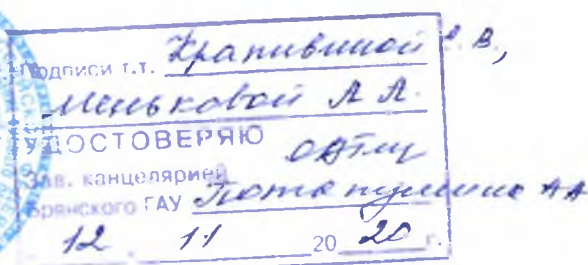 Подписи т.т. Крапивиной Е.В.,
Меньковой А.А.
УДОСТОВЕРЯЮ
Зав. канцелярией
Брянского ГАУ
12 11 2020 г.